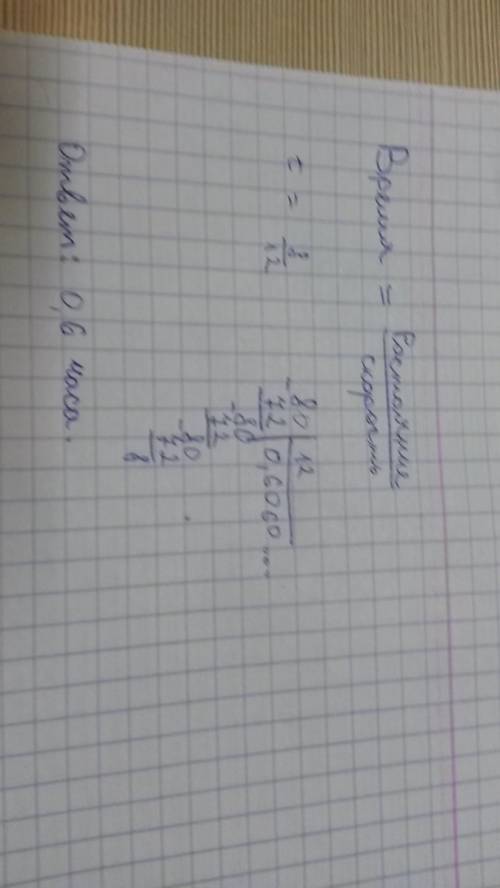 Время = Расстояние
скорость
t = 8
12
-80 | 12
72 | 0,6060...
-80
72
-80
72
8
Ответ: 0,6 часа.